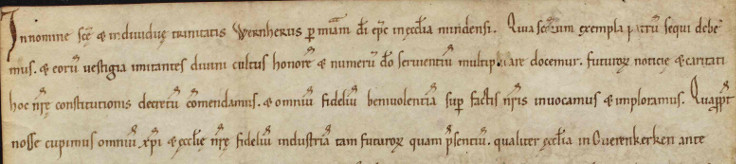 In nomine scę & individuę trinitatis Wernherus p̄ miam̄ dī epc̄ in ęccl̄ia mindensi. Quia sc̄orum exempla patrū sequi debe
mus. & eorū vestigia imitantes divini cultus honorē & numerū dō servientiū multiplicare docemur. futuroꝝ noticię & caritati
hoc nr̄ę constitutionis decretū cōmendamus. & omniū fideliū benivolentiā sup̄ factis nr̄is invocamus & imploramus. Quapp̄t
nosse cupimus omniū xp̄i & ęccl̄ię nr̄ę fideliū industriā tam futuroꝝ quam p̄sentiū. qualiter ęccl̄ia in Overenkerken ante